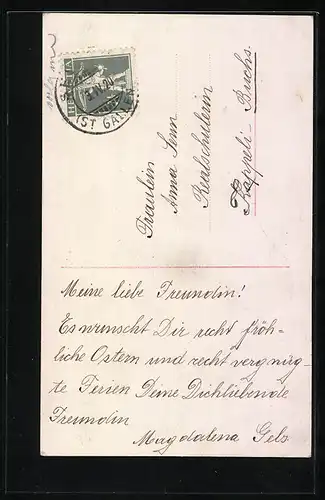 HELVETIA
ST GALLEN
Fräulein
Anna Senn
Realschülerin
Räppeli - Buchs.
Meine liebe Freundin!
Es wünscht Dir recht fröh-
liche Ostern und recht vergnüg-
te Ferien Deine Dichliebende
Freundin
Magdalena